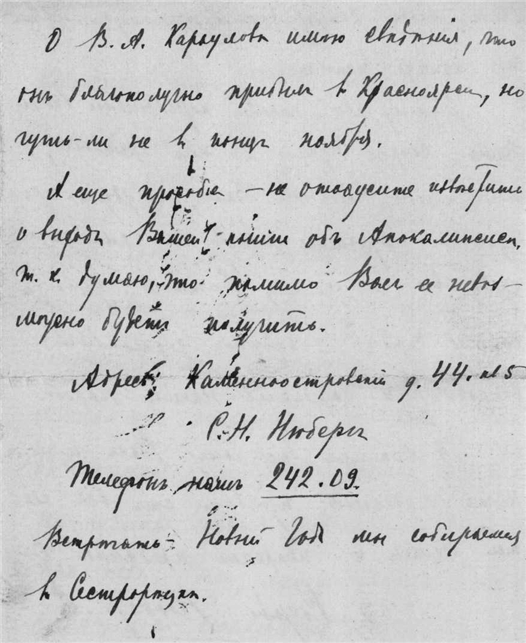 О В. А. Караулове имѣю свѣдѣнія, что
онъ благополучно прибылъ въ Красноярскъ, но
чуть-ли не въ концѣ ноября.
А еще просьба — не откажите извѣстить
о выходѣ Вашей книги объ Апокалипсисѣ,
т. к. думаю, что помимо Васъ ее невоз-
можно будетъ получить.
Адресъ: Каменноостровскій д. 44. кв 5
С. Н.
Телефонъ нашъ 242.09.
Встрѣчать Новый Годъ мы собираемся
въ Сестрорѣцкѣ.